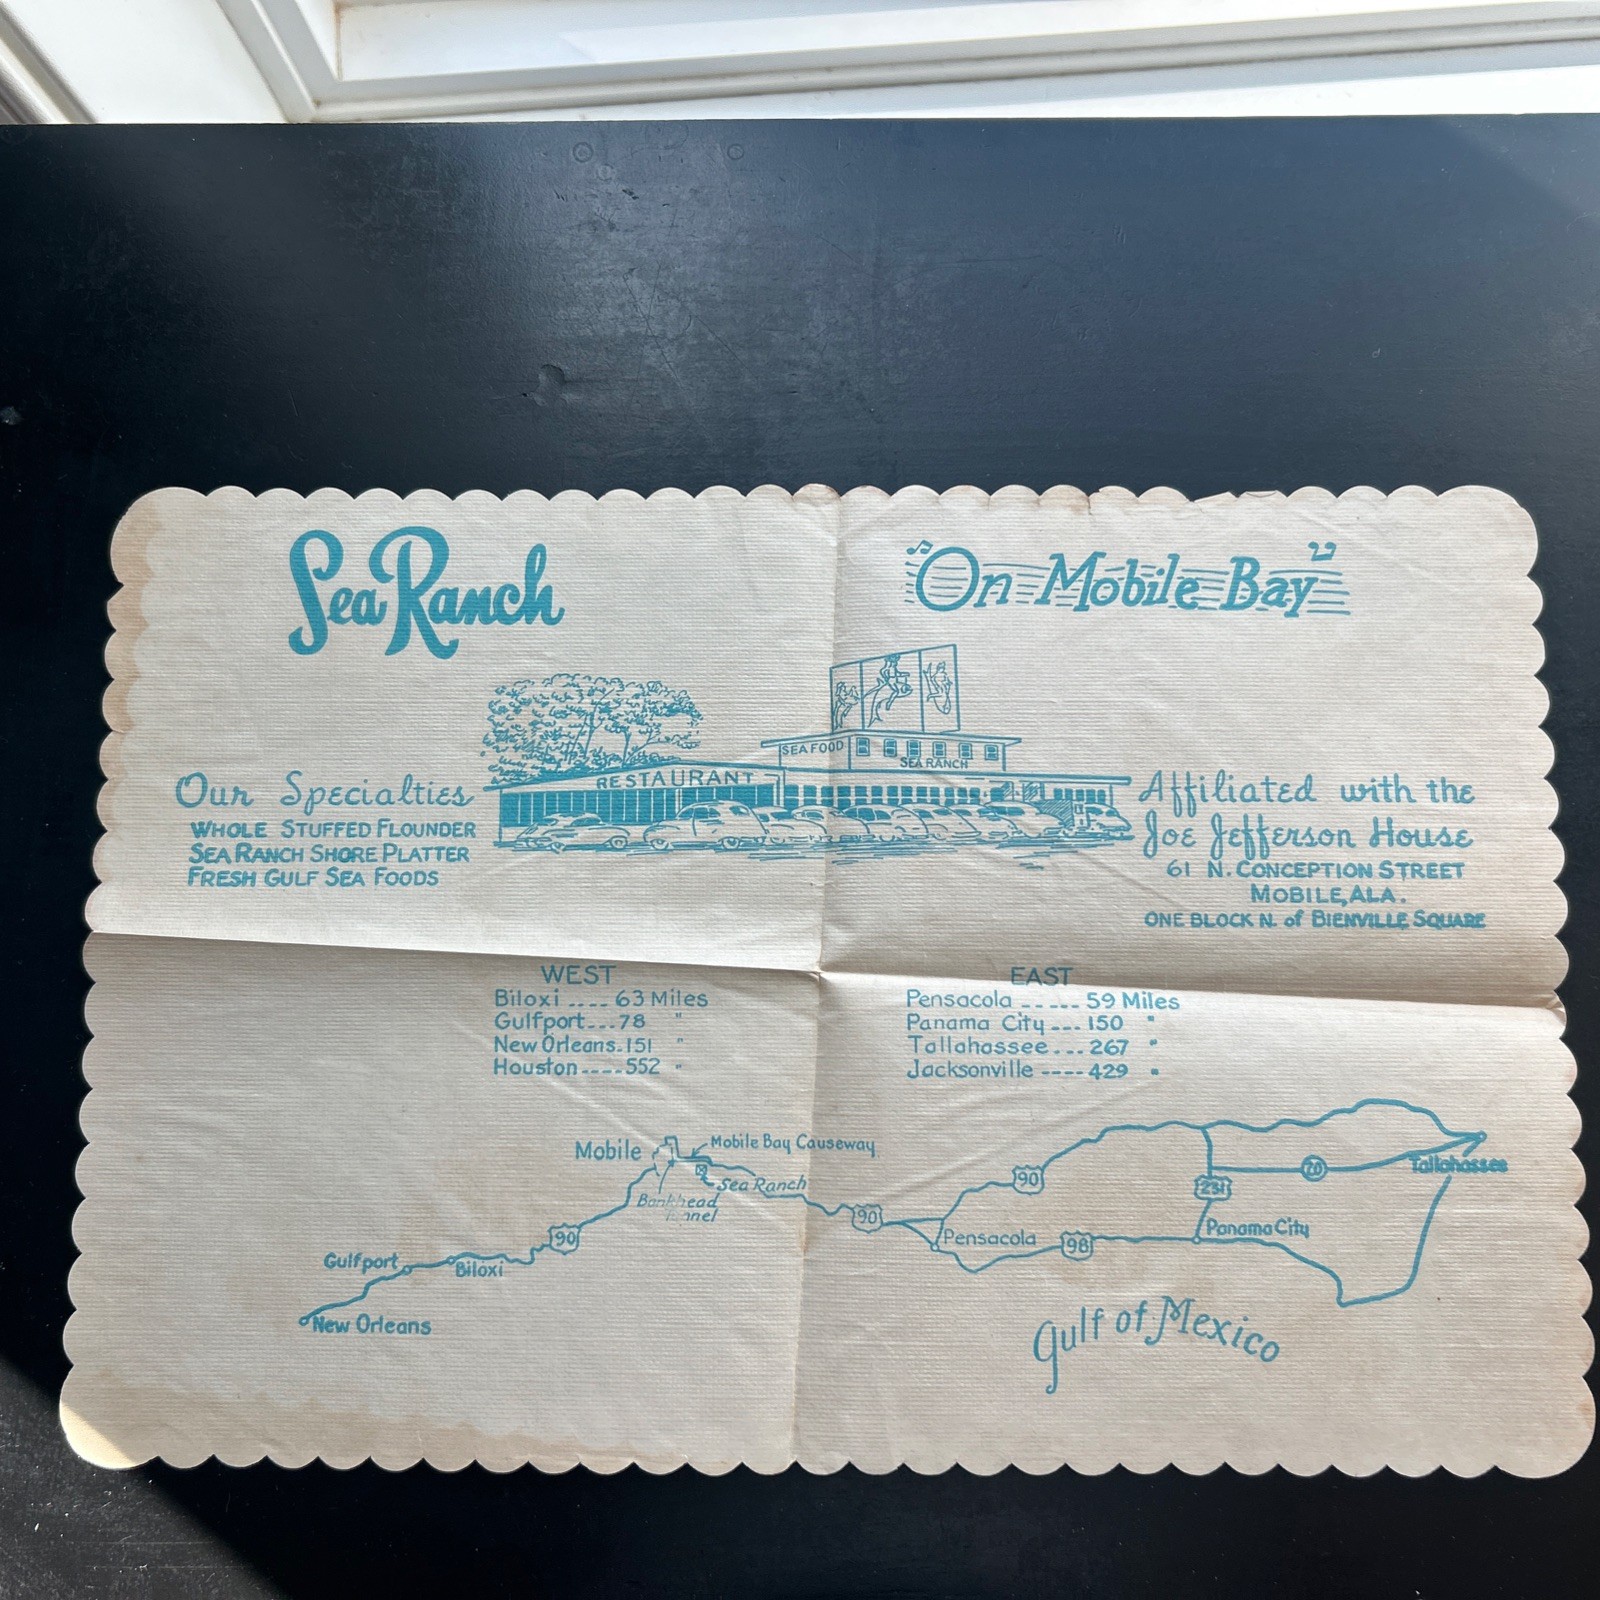 Sea Ranch
"On Mobile Bay"
SEA FOOD
SEA RANCH
RESTAURANT
Our Specialties
WHOLE STUFFED FLOUNDER
SEA RANCH SHORE PLATTER
FRESH GULF SEA FOODS
Affiliated with the
Joe Jefferson House
61 N. CONCEPTION STREET
MOBILE, ALA.
ONE BLOCK N. of BIENVILLE SQUARE
WEST
Biloxi .... 63 Miles
Gulfport...78 "
New Orleans.151 "
Houston ----552 "
EAST
Pensacola ----- 59 Miles
Panama City --- 150 "
Tallahassee... 267 "
Jacksonville ---- 429 "
Mobile
Mobile Bay Causeway
Sea Ranch
Bankhead
Tunnel
90
90
90
20
231
98
Tallahassee
Panama City
Pensacola
Gulfport
Biloxi
New Orleans
Gulf of Mexico